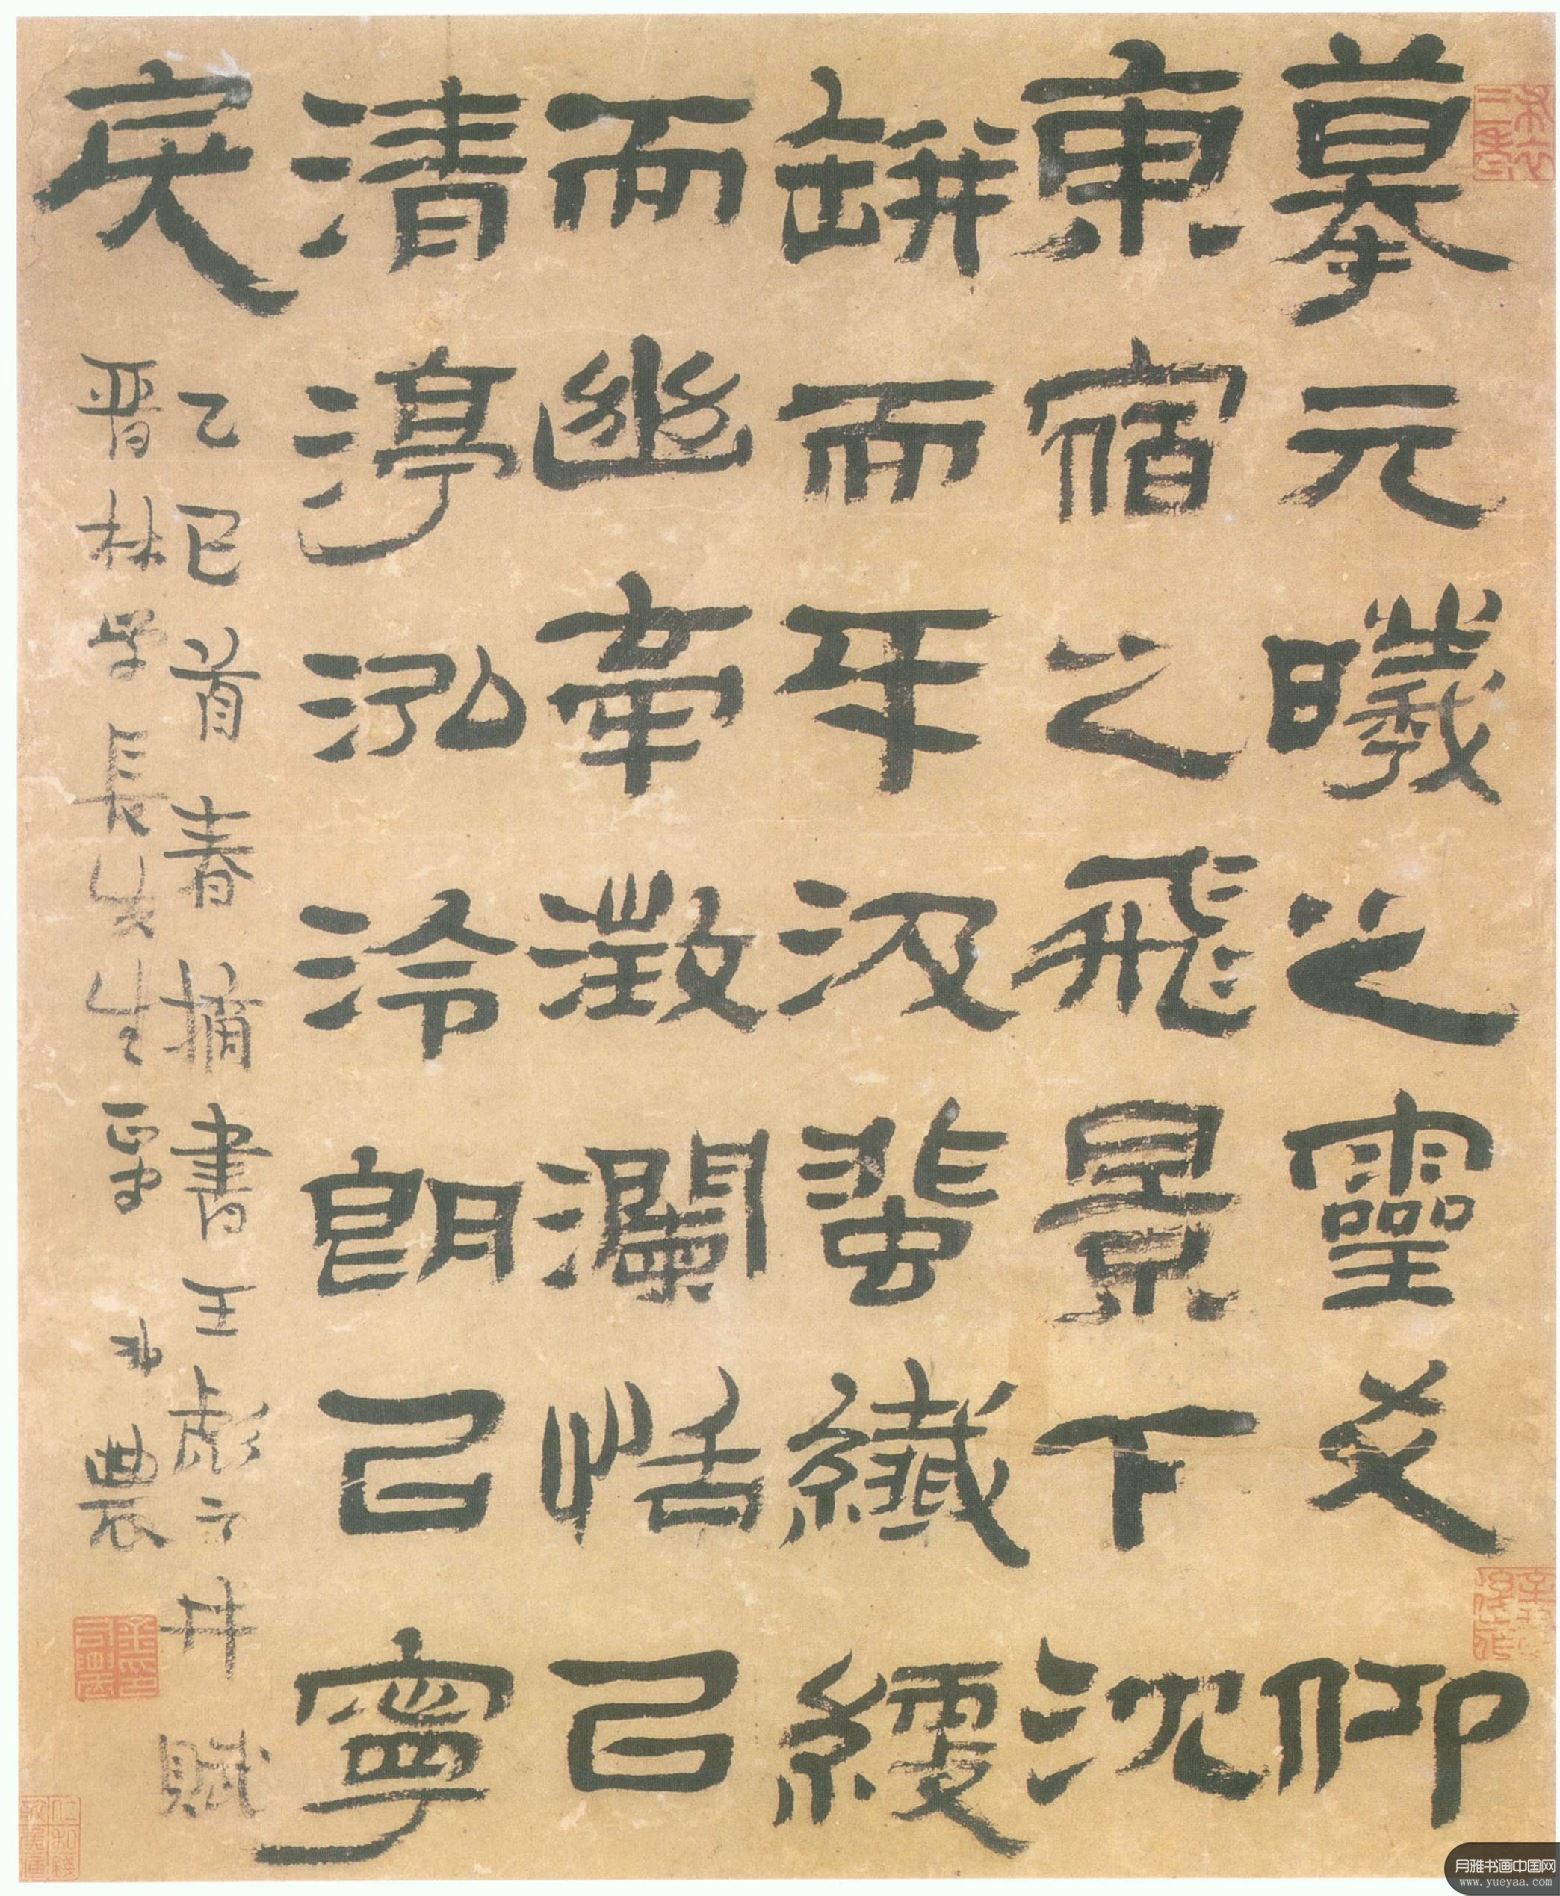 摹元曦之靈爻仰
東宿之飛景下沈
缾而牙汲蜚纖綆
而幽牽澂瀾恬已
清渟泓泠朗已寧
戾
乙巳首春摘書王彪之井賦
晉林學長先生正 弟農
月雅书画中国网
www.yueyaa.com